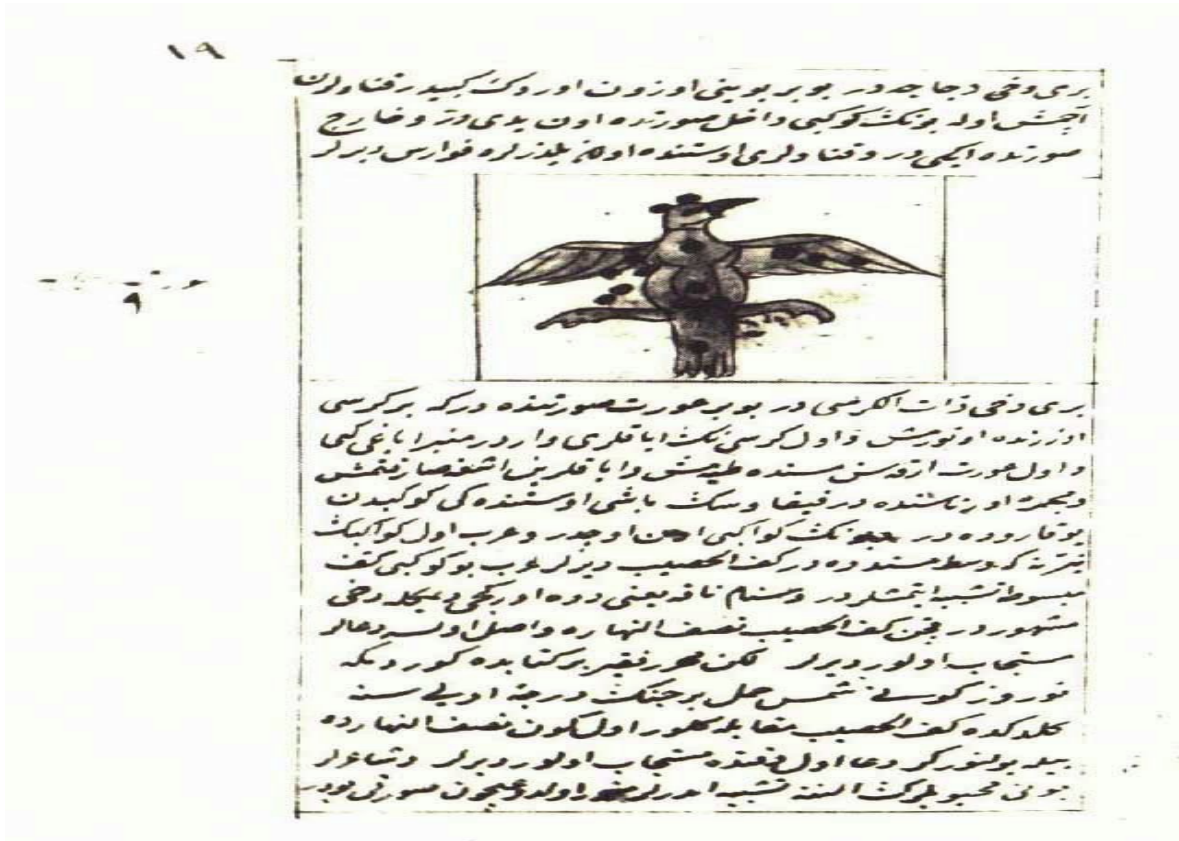 ١٩
بری دخی دجاجه در بو بر بوینی اوزون اوردك كبیدر قنادلرن
آچمش اوله بونك كوكبی داخل صورتده اون یدی در و خارج
صورتده ایكی در و قنادلری اوستنده اولان یلدزلره فوارس دیرلر
٩
بری دخی ذات الكرسی در بو بر عورت صورتنده در كه بر كرسی
اوزرنده اوتورمش و اول كرسی نك ایاقلری واردر منبر ایاغی كبی
و اول عورت ارقه سن مسنده طیامش و ایاقلرین اشغه صارقتمش
و مجره اورتاسنده در قیفاوسك باشی اوستنده كی كوكبدن
یوقاروده در بونك كواكبی اون اوچدر و عرب اول كواكبك
كه وسط مسنده در كف الخضیب دیرلر عرب بو كوكبی كف
مبسوطه تشبیه ایتمشلردر و سنام ناقه یعنی دوه اوركجی دیمكله دخی
مشهوردر چن كف الخضیب نصف النهاره واصل اولسه دعالر
مستجاب اولور دیرلر لكن محرر فقیر بر كتابده كوردیكه
نوروز كونی شمس حمل برجنك درجۀ اولی سنه
كلدكده كف الخضیب مقابله كلور اول كون نصف النهارده
بیله بولنور كر دعا اول وقتده مستجاب اولور دیرلر و شاعرلر
بونی محبوبلرك الننه تشبیه ایدرلر اولدوغیچون صورتی بودر